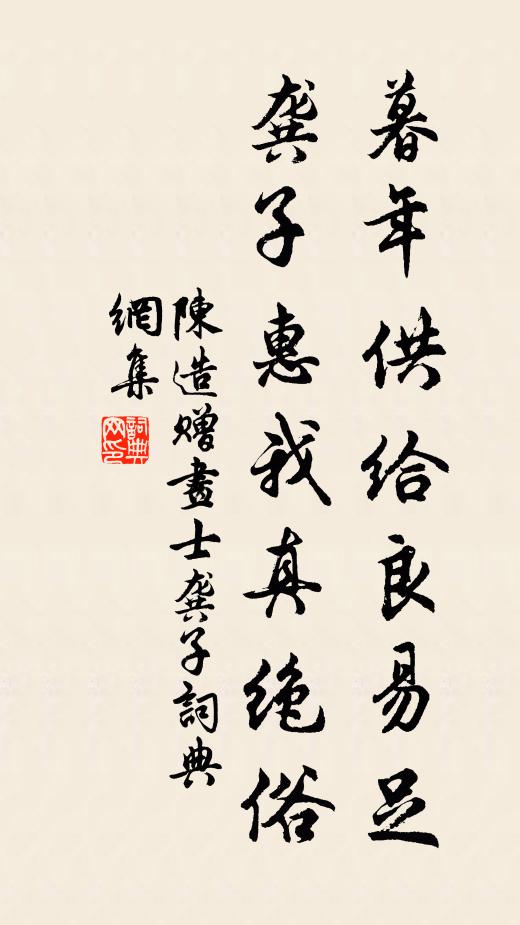 暮年供给良易足
龚子惠我真绝俗
陳造赠畫士龚子詞典
網集
詞典
网印